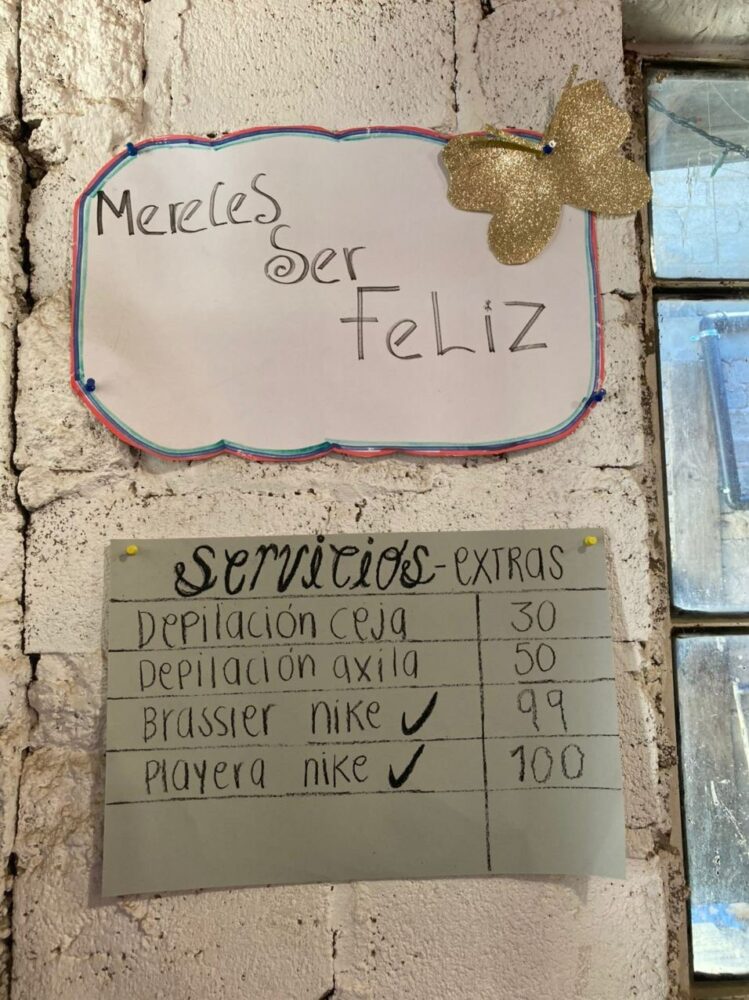 Mereces
Ser
Feliz
Servicios - extras
Depilación ceja 30
Depilación axila 50
Brassier nike ✓ 99
Playera nike ✓ 100